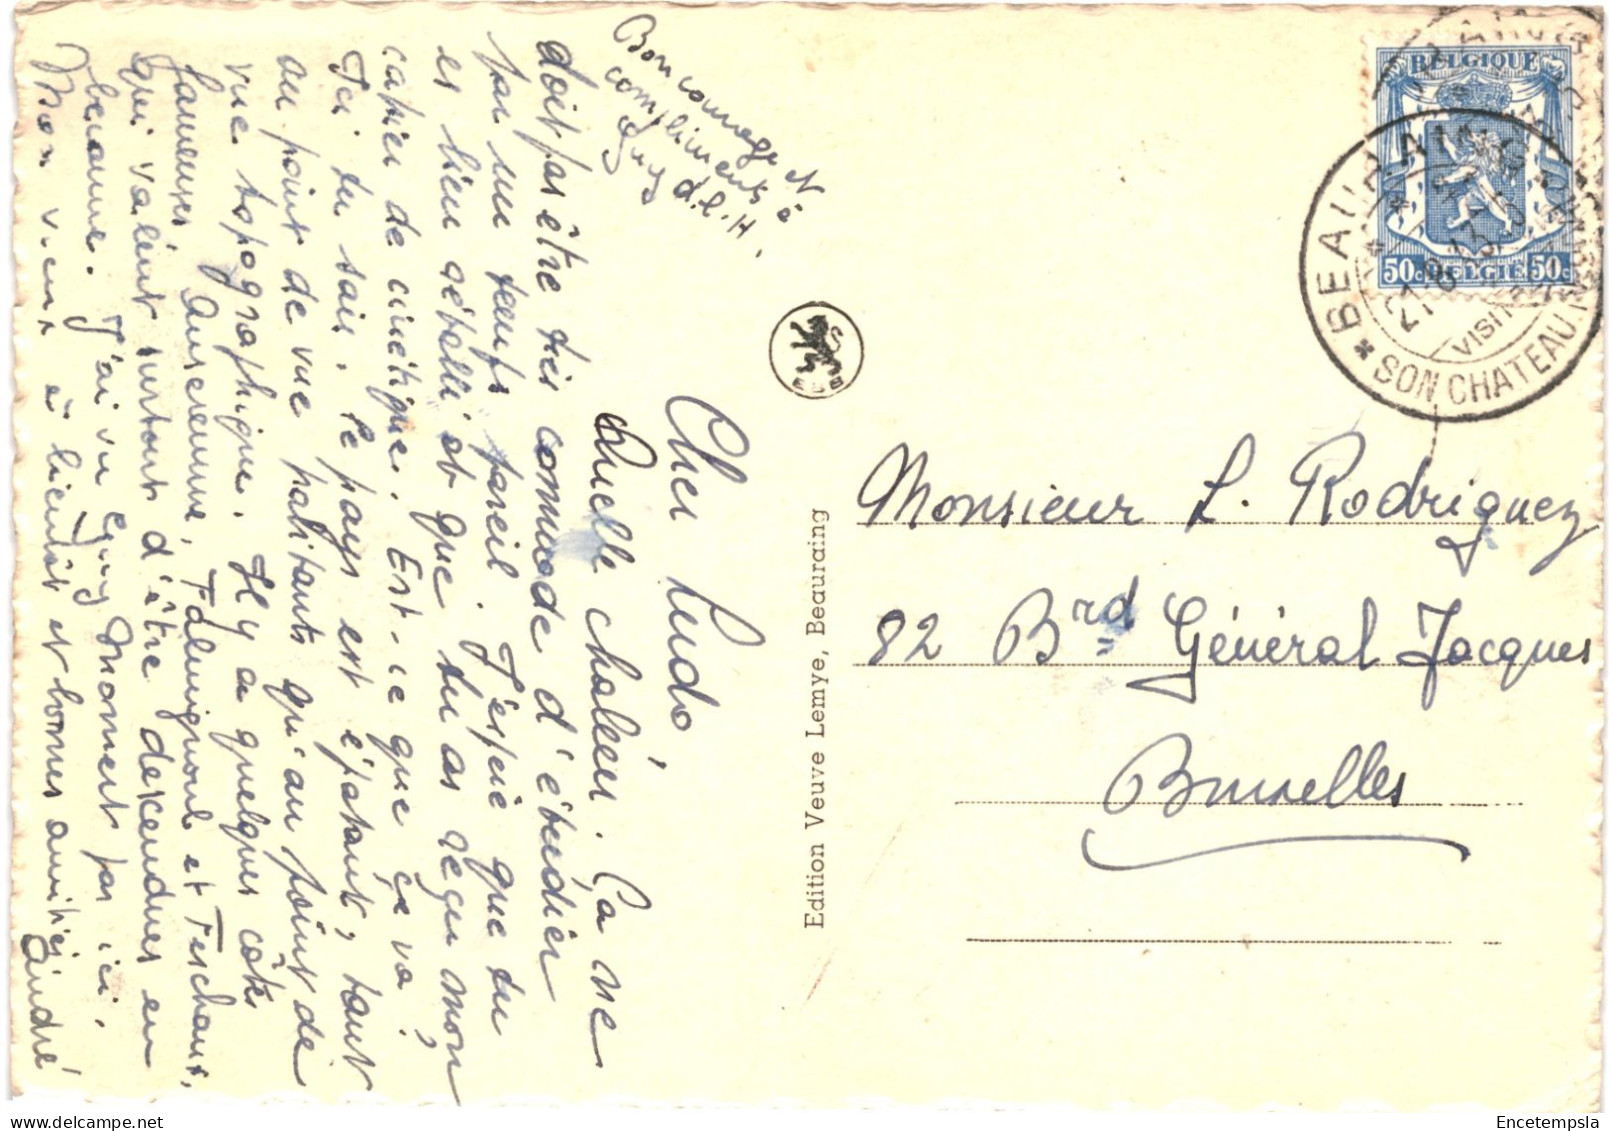 Cher Ludo,
Quelle chaleur. Ca ne
doit pas être très commode d'étudier
par un temps pareil. J'espère que tu
es bien rétabli et que tu as reçu mon
cahier de cinétique. Est-ce que ça va?
Ici tu sais, le pays est épatant, tant
au point de vue habitants qu'au point de
vue topographique. Il y a quelques côtes
fameuses. Anseremme, Falmignoul et Feschaux,
qui valent surtout d'être descendues en
bécanne. J'ai vu Guy Mormert par ici.
Mon vieux à bientôt et bonnes amitiés
André
Bon courage et
compliments à
Guy d.l.H.
EDB
Edition Veuve Lemye, Beauraing
BELGIQUE
50c BELGIË 50c
BEAURAING
VISITEZ
SON CHATEAU
Monsieur L. Rodriguez
82 Brd Général Jacques
Bruxelles
Encetempsla